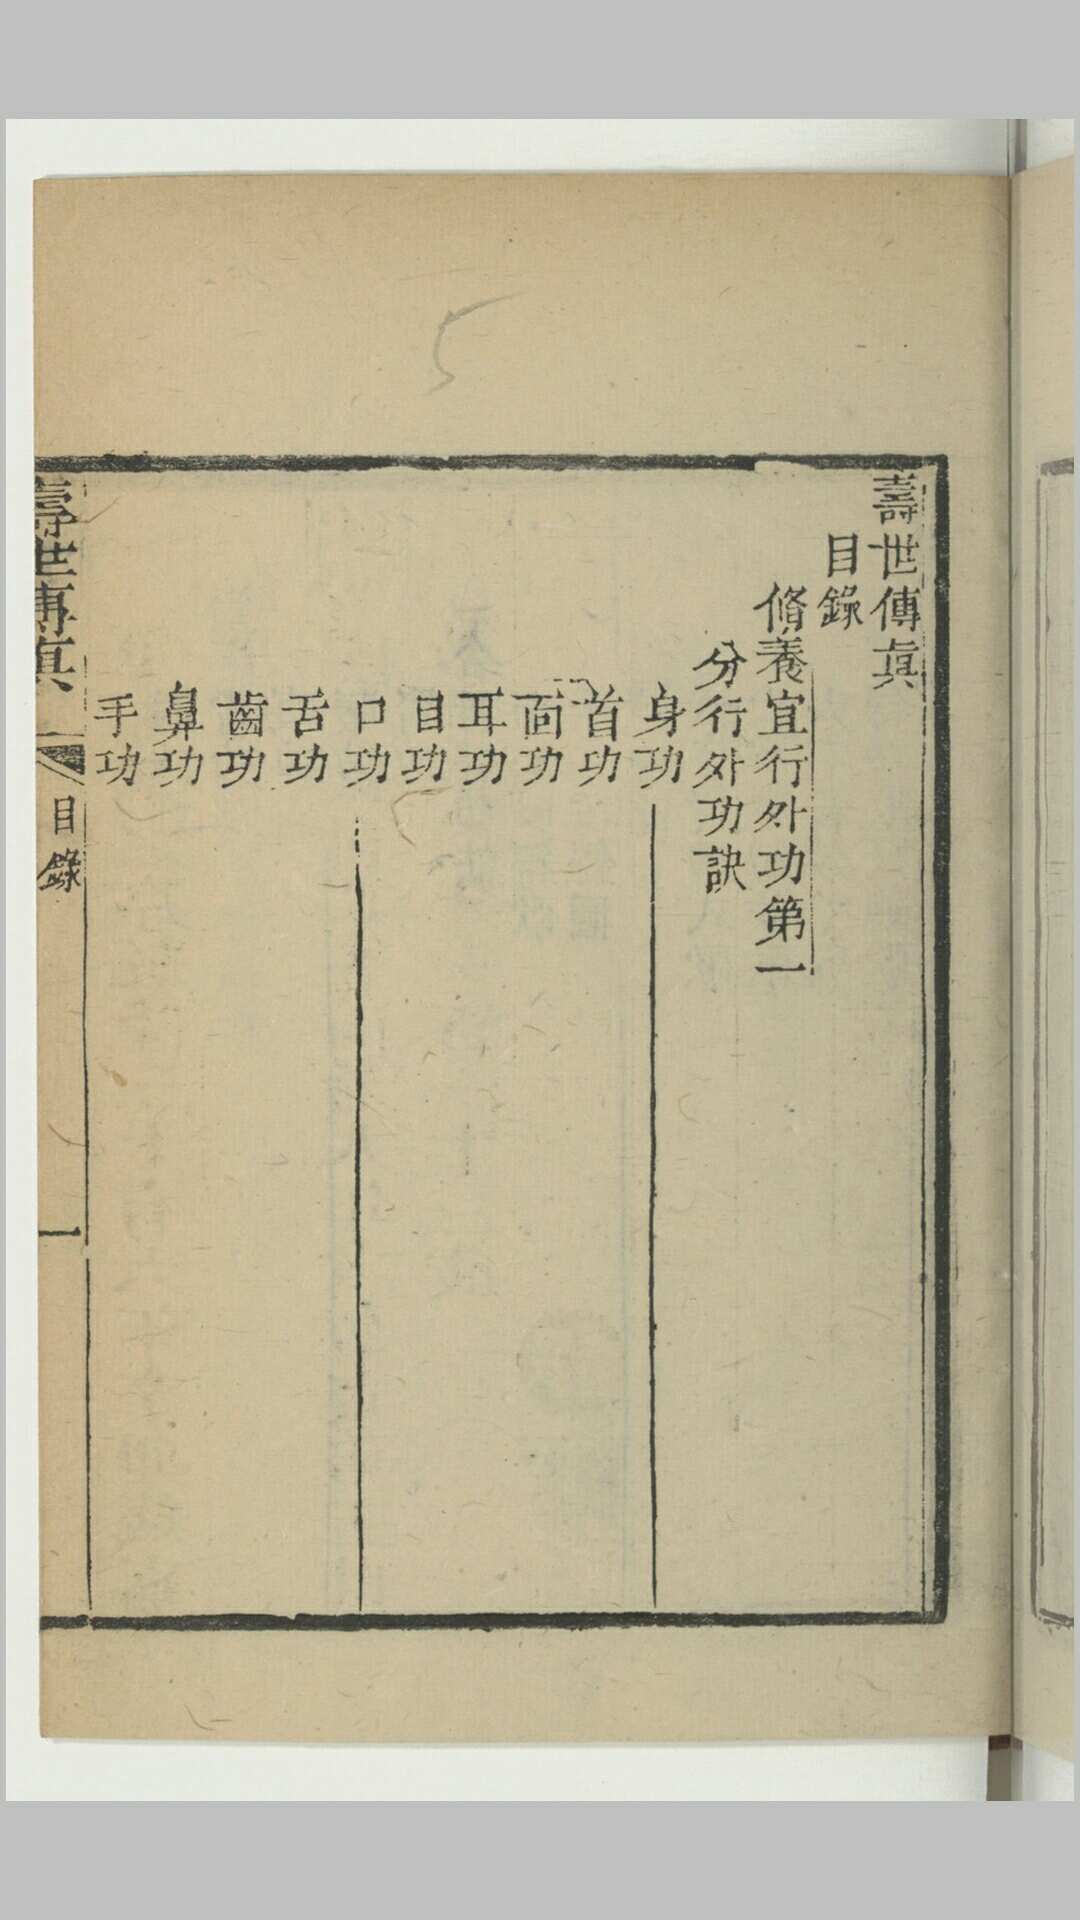 壽世傳眞
目錄
脩養宜行外功第一
分行外功訣
身功
首功
面功
耳功
目功
口功
舌功
齒功
鼻功
手功
壽世傳眞
目錄
一
5